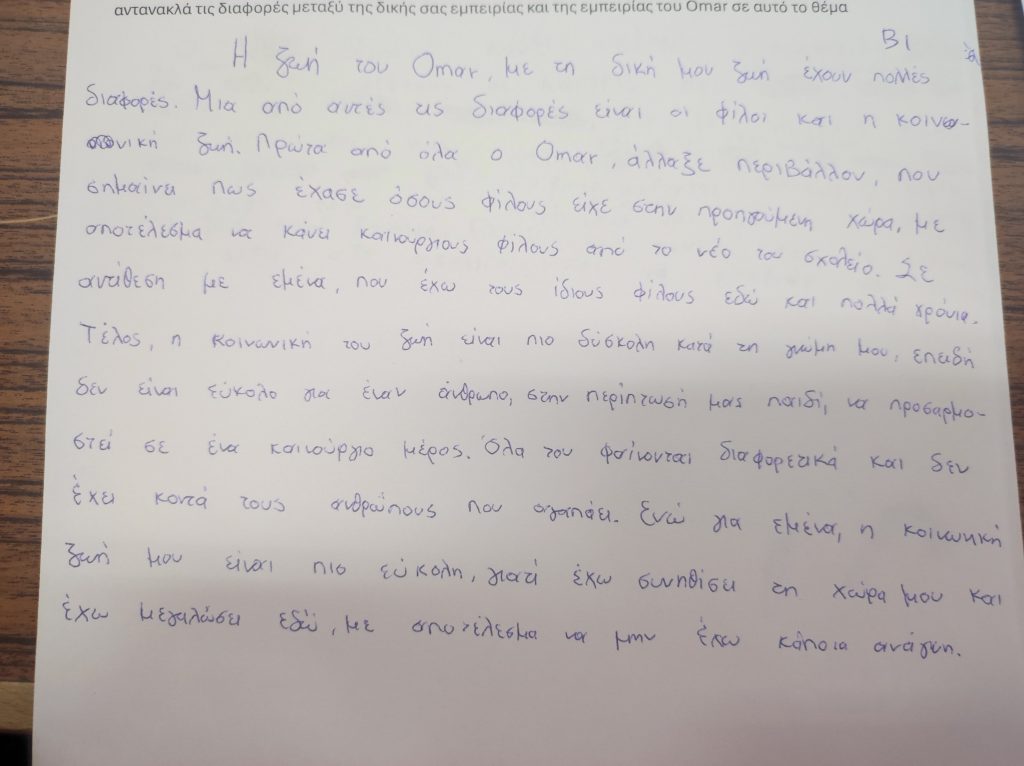 αντανακλά τις διαφορές μεταξύ της δικής σας εμπειρίας και της εμπειρίας του Omar σε αυτό το θέμα
Β1
Η ζωή του Omar, με τη δική μου ζωή έχουν πολλές
διαφορές. Μια από αυτές τις διαφορές είναι οι φίλοι και η κοινω-
νική ζωή. Πρώτα από όλα ο Omar, άλλαξε περιβάλλον, που
σημαίνει πως έχασε όσους φίλους είχε στην προηγούμενη χώρα, με
αποτέλεσμα να κάνει καινούργιους φίλους από το νέο του σχολείο. Σε
αντίθεση με εμένα, που έχω τους ίδιους φίλους εδώ και πολλά χρόνια.
Τέλος, η κοινωνική του ζωή είναι πιο δύσκολη κατά τη γνώμη μου, επειδή
δεν είναι εύκολο για έναν άνθρωπο, στην περίπτωσή μας παιδί, να προσαρμο-
στεί σε ένα καινούργιο μέρος. Όλα του φαίνονται διαφορετικά και δεν
έχει κοντά τους ανθρώπους που αγαπάει. Ενώ για εμένα, η κοινωνική
ζωή μου είναι πιο εύκολη, γιατί έχω συνηθίσει τη χώρα μου και
έχω μεγαλώσει εδώ, με αποτέλεσμα να μην έχω κάποια ανάγκη.